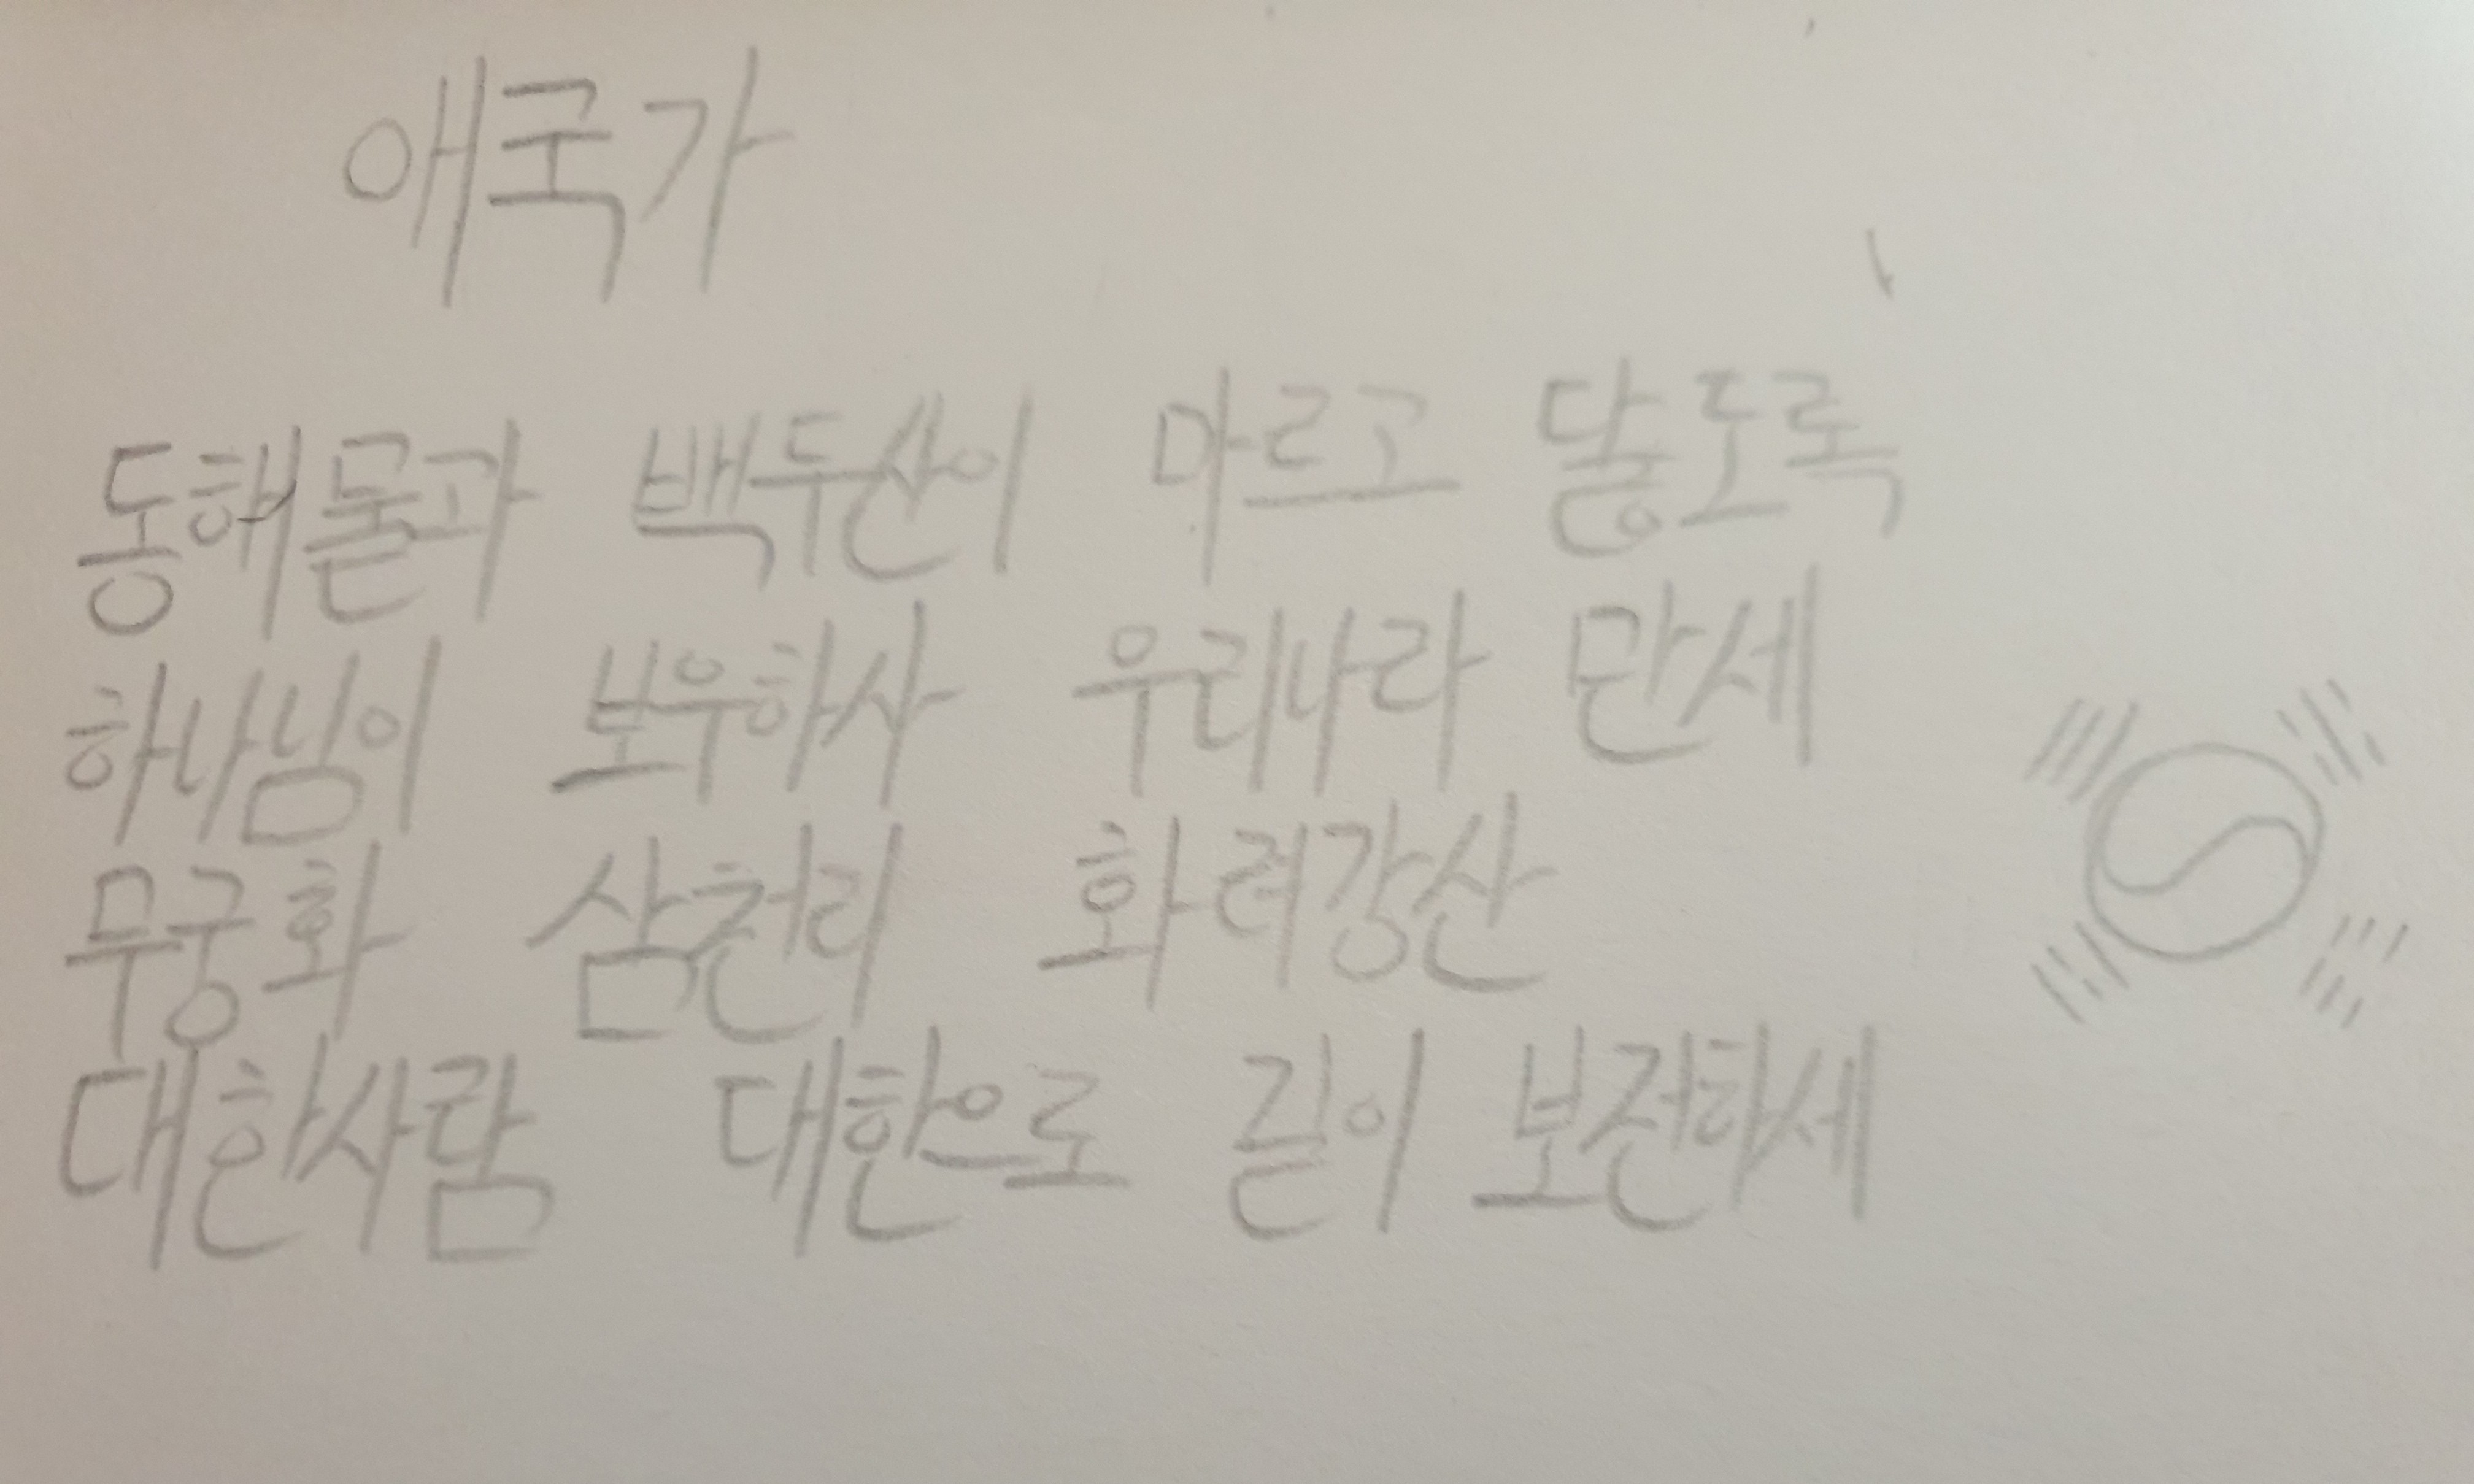 애국가
동해물과 백두산이 마르고 닳도록
하나님이 보우하사 우리나라 만세
무궁화 삼천리 화려강산
대한사람 대한으로 길이 보전하세